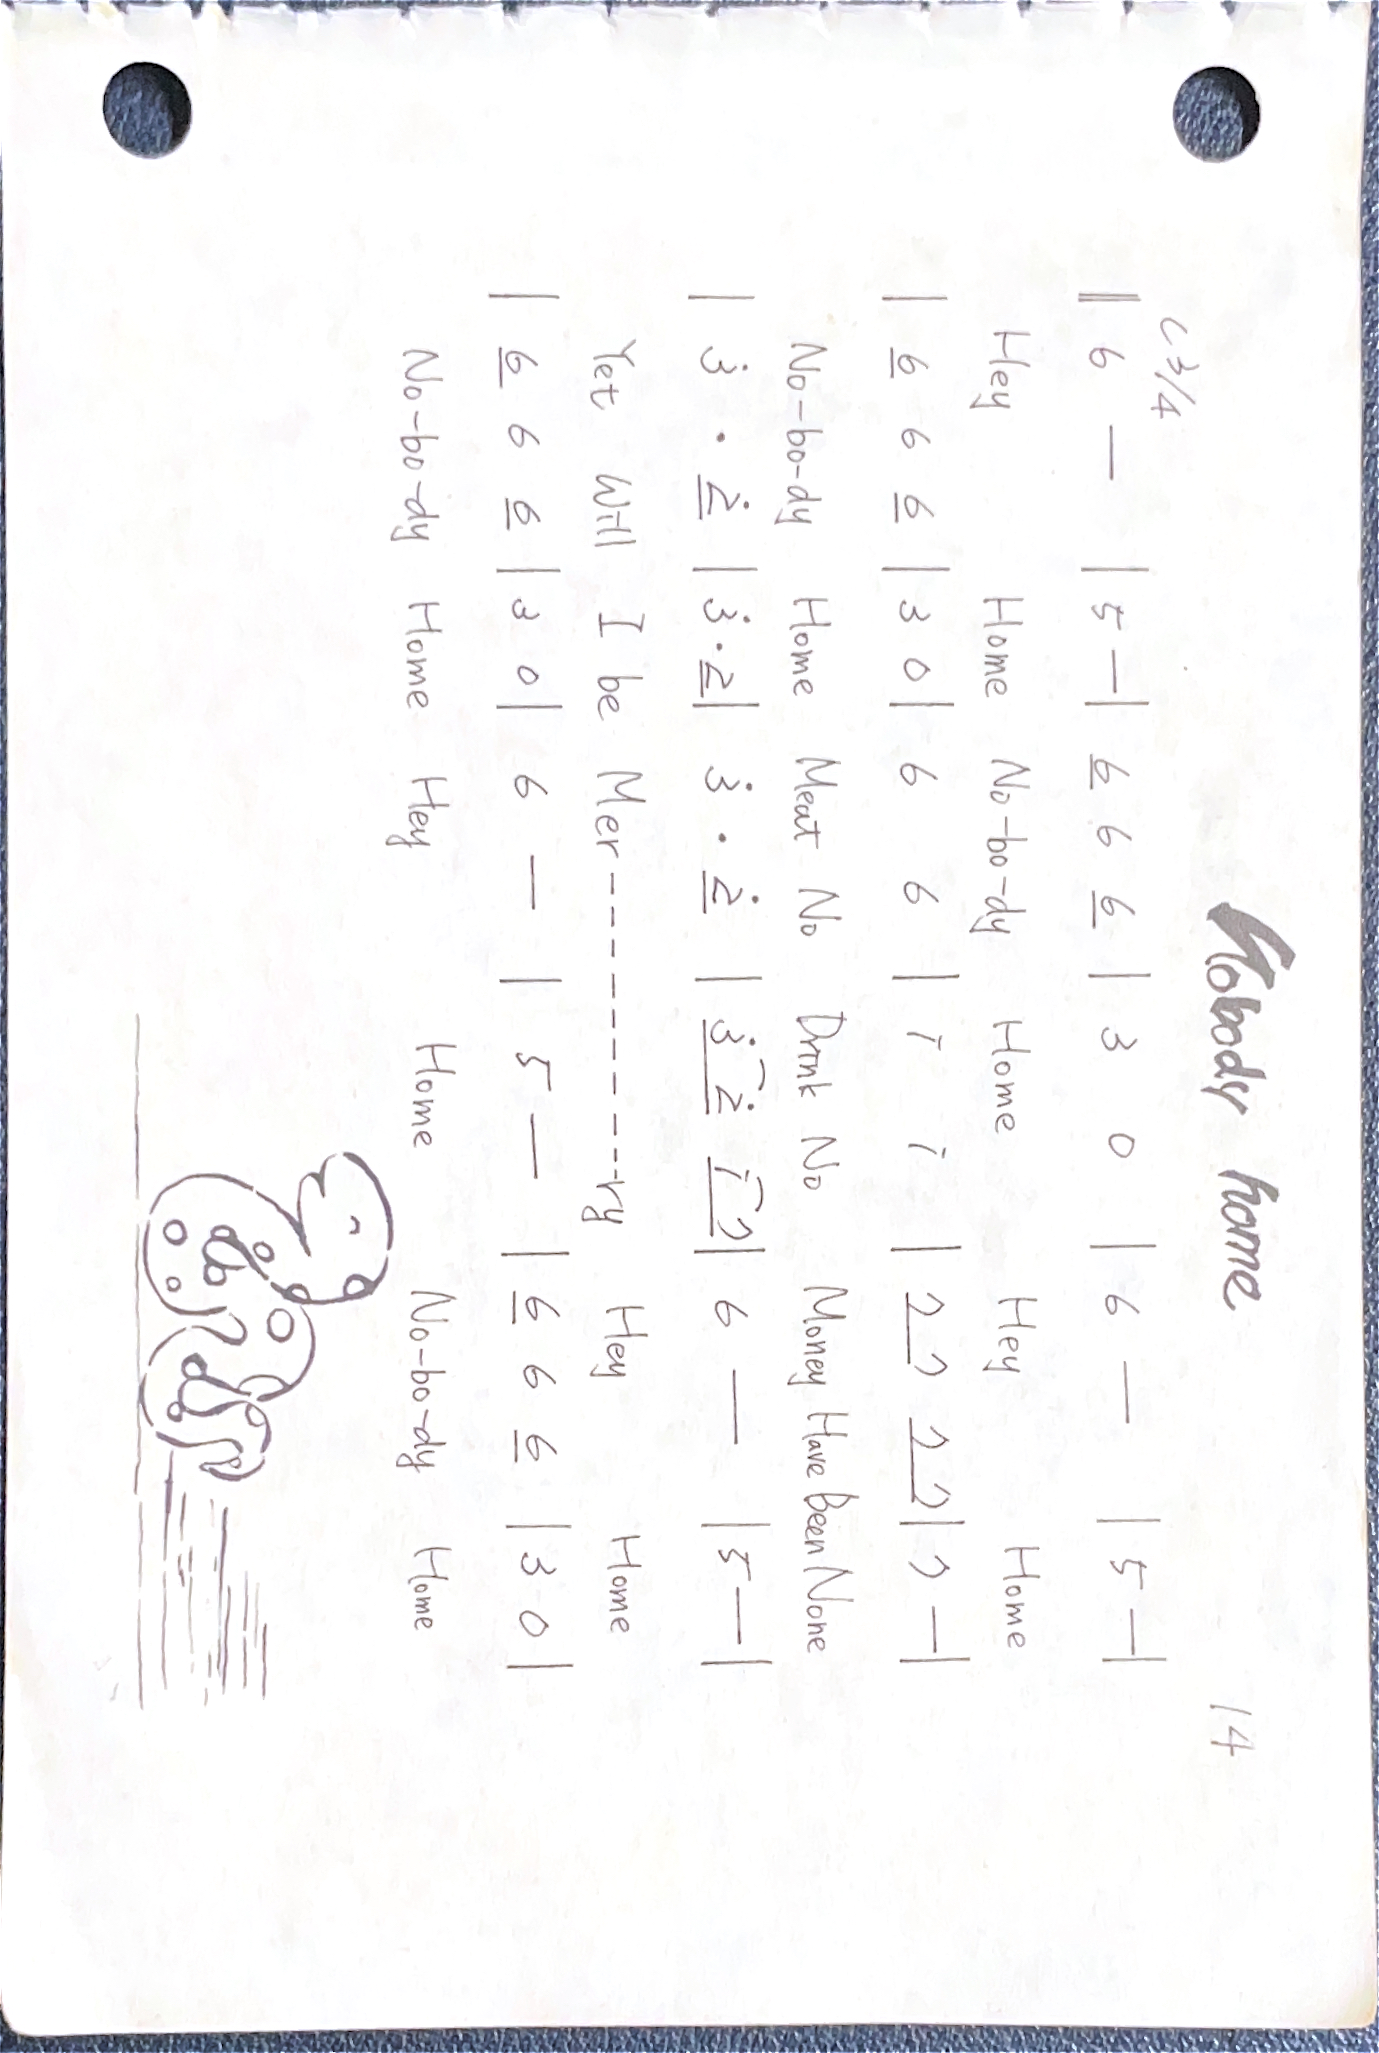 Nobody home
14
C 3/4
‖ 6 — | 5 — | 6̲ 6 6̲ | 3 0 | 6 — | 5 — |
Hey Home No-bo-dy Home Hey Home
| 6̲ 6 6̲ | 3 0 | 6 6 | i i | 7̲ 7̲ 7̲ 7̲ | 7 — |
No-bo-dy Home Meat No Drink No Money Have Been None
| 3̇ · 2̲̇ | 3̇ · 2̲ | 3̇ · 2̲̇ | 3̲̇ 2̲̇ i̲ 7̲ | 6 — | 5 — |
Yet Will I be Mer-----------ry Hey Home
| 6̲ 6 6̲ | 3 0 | 6 — | 5 — | 6̲ 6 6̲ | 3 0 |
No-bo-dy Home Hey Home No-bo-dy Home